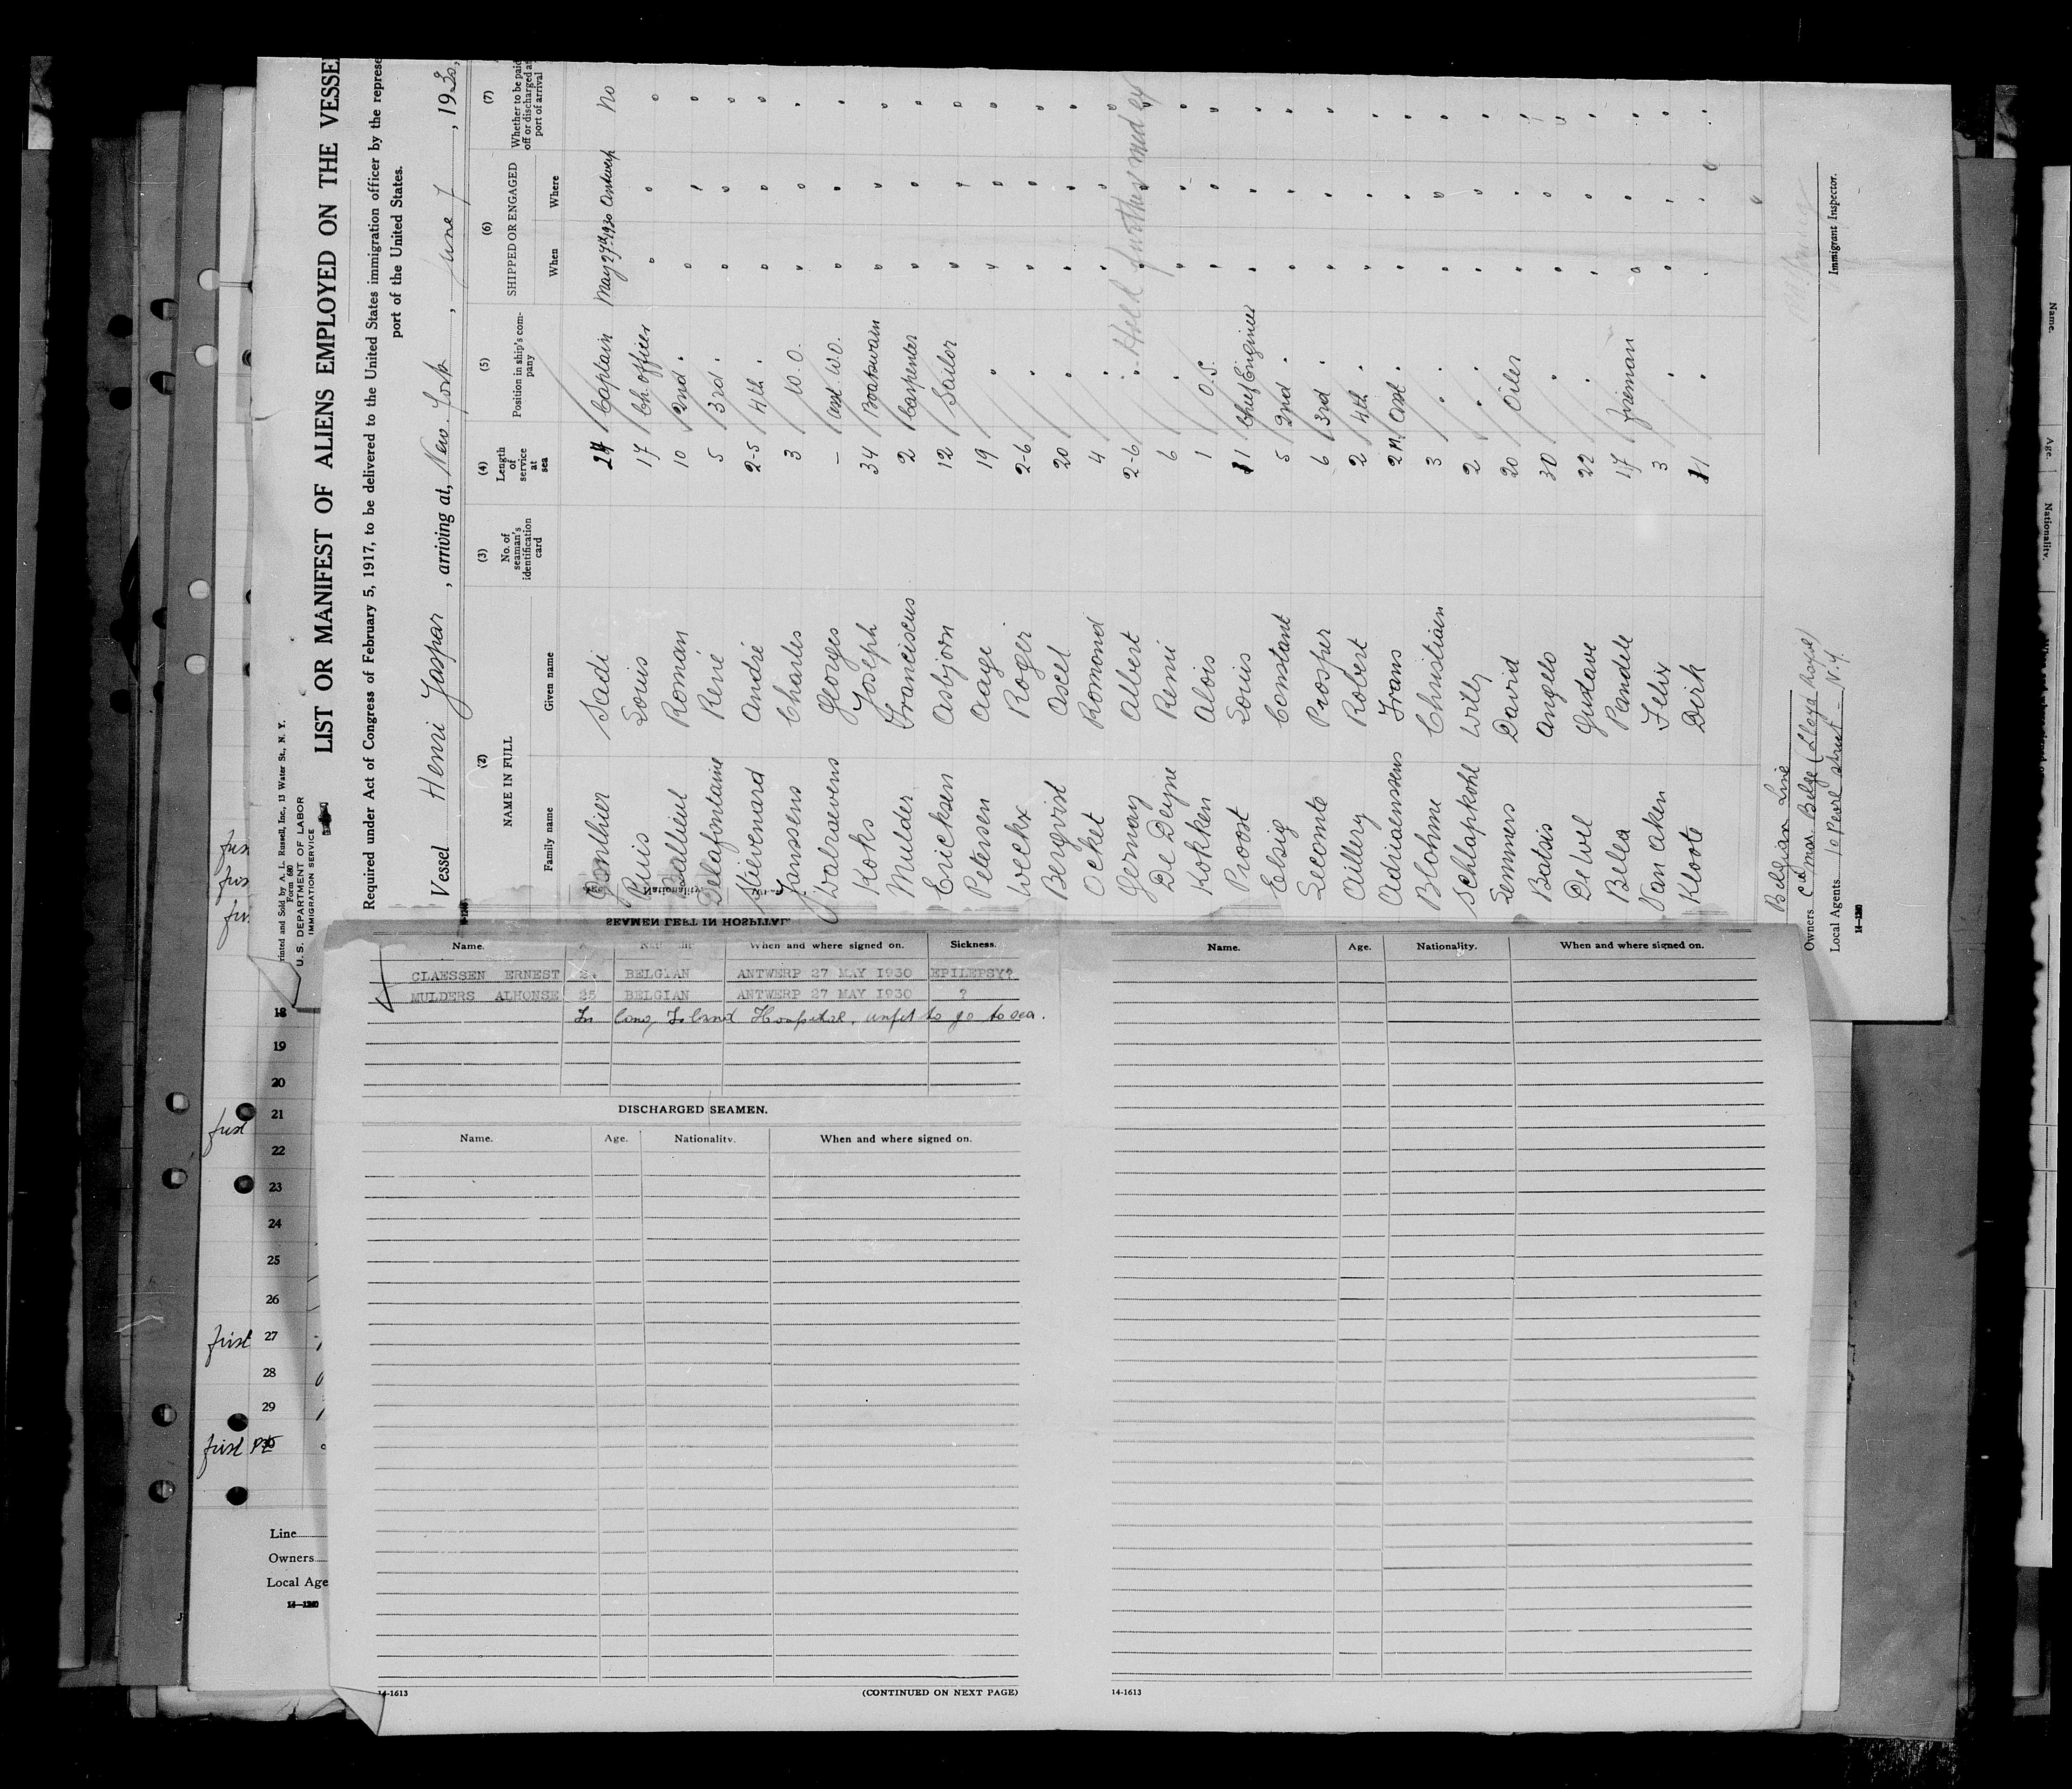 Printed and Sold by A. L. Russell, Inc., 13 Water St., N. Y.
Form 680
U. S. DEPARTMENT OF LABOR
IMMIGRATION SERVICE
LIST OR MANIFEST OF ALIENS EMPLOYED ON THE VESSE
Required under Act of Congress of February 5, 1917, to be delivered to the United States immigration officer by the represe
port of the United States.
Vessel Henri Jaspar, arriving at, New. York, June 7, 1930,
(2) (3) (4) (5) (6) (7)
NAME IN FULL No. of seaman's identification card Length of service at sea Position in ship's company SHIPPED OR ENGAGED Whether to be paid off or discharged at port of arrival
Family name Given name When Where
Gonthier Sadi 24 Captain May 27th 1930 Antwerp No
Ruis Louis 17 Ch. officer
Ballieul Roman 10 2nd "
Delafontaine René 5 3rd "
Stievenard André 2-5 4th "
Janssens Charles 3 W. O.
Walraevens Georges - asst. W.O.
Koks Joseph 34 Boatswain
Mulder Franciscus 2 Carpenter
Ericksen Asbjorn 12 Sailor
Petersen Aage 19 "
Weckx Roger 2-6 "
Bergvist Ascel 20 "
Ocket Romond 4 "
Germany Albert 2-6 " Held further med ex
De Deyne Remi 6 "
Kokken Alois 1 O.S.
Proost Louis 11 Chief Engineer
Elsig Constant 5 2nd "
Lecomte Prosper 6 3rd "
Aillery Robert 2 4th "
Adriaenssens Frans 2M. Asst "
Blohme Christiaen 3 "
Schlapkohl Willy 2 "
Lemmers David 20 Oiler
Batsis Angelo 30 "
De Wel Gustave 22 "
Belea Pandele 17 fireman
Van aken Felix 3 "
Kloote Dirk 11 "
Belgian Line
Owners Cie Mar. Belge (Lloyd Royal)
Local Agents 10 Pearl Street - N.Y.
14-1240
Immigrant Inspector.
SEAMEN LEFT IN HOSPITAL.
Name. Nationality. When and where signed on. Sickness.
CLAESSEN ERNEST BELGIAN ANTWERP 27 MAY 1930 EPILEPSY?
MULDERS ALHONSE 25 BELGIAN ANTWERP 27 MAY 1930 ?
In Long Island Hospital, unfit to go to sea.
DISCHARGED SEAMEN.
Name. Age. Nationality. When and where signed on.
14-1613 (CONTINUED ON NEXT PAGE)
Name. Age. Nationality. When and where signed on.
14-1613
18
19
20
21
22
23
24
25
26
27
28
29
30
first
first
first
Line
Owners
Local Age
14-1240
Name. Age. Nationality.